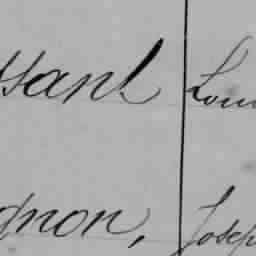 ssant Lou
gnon, Josep